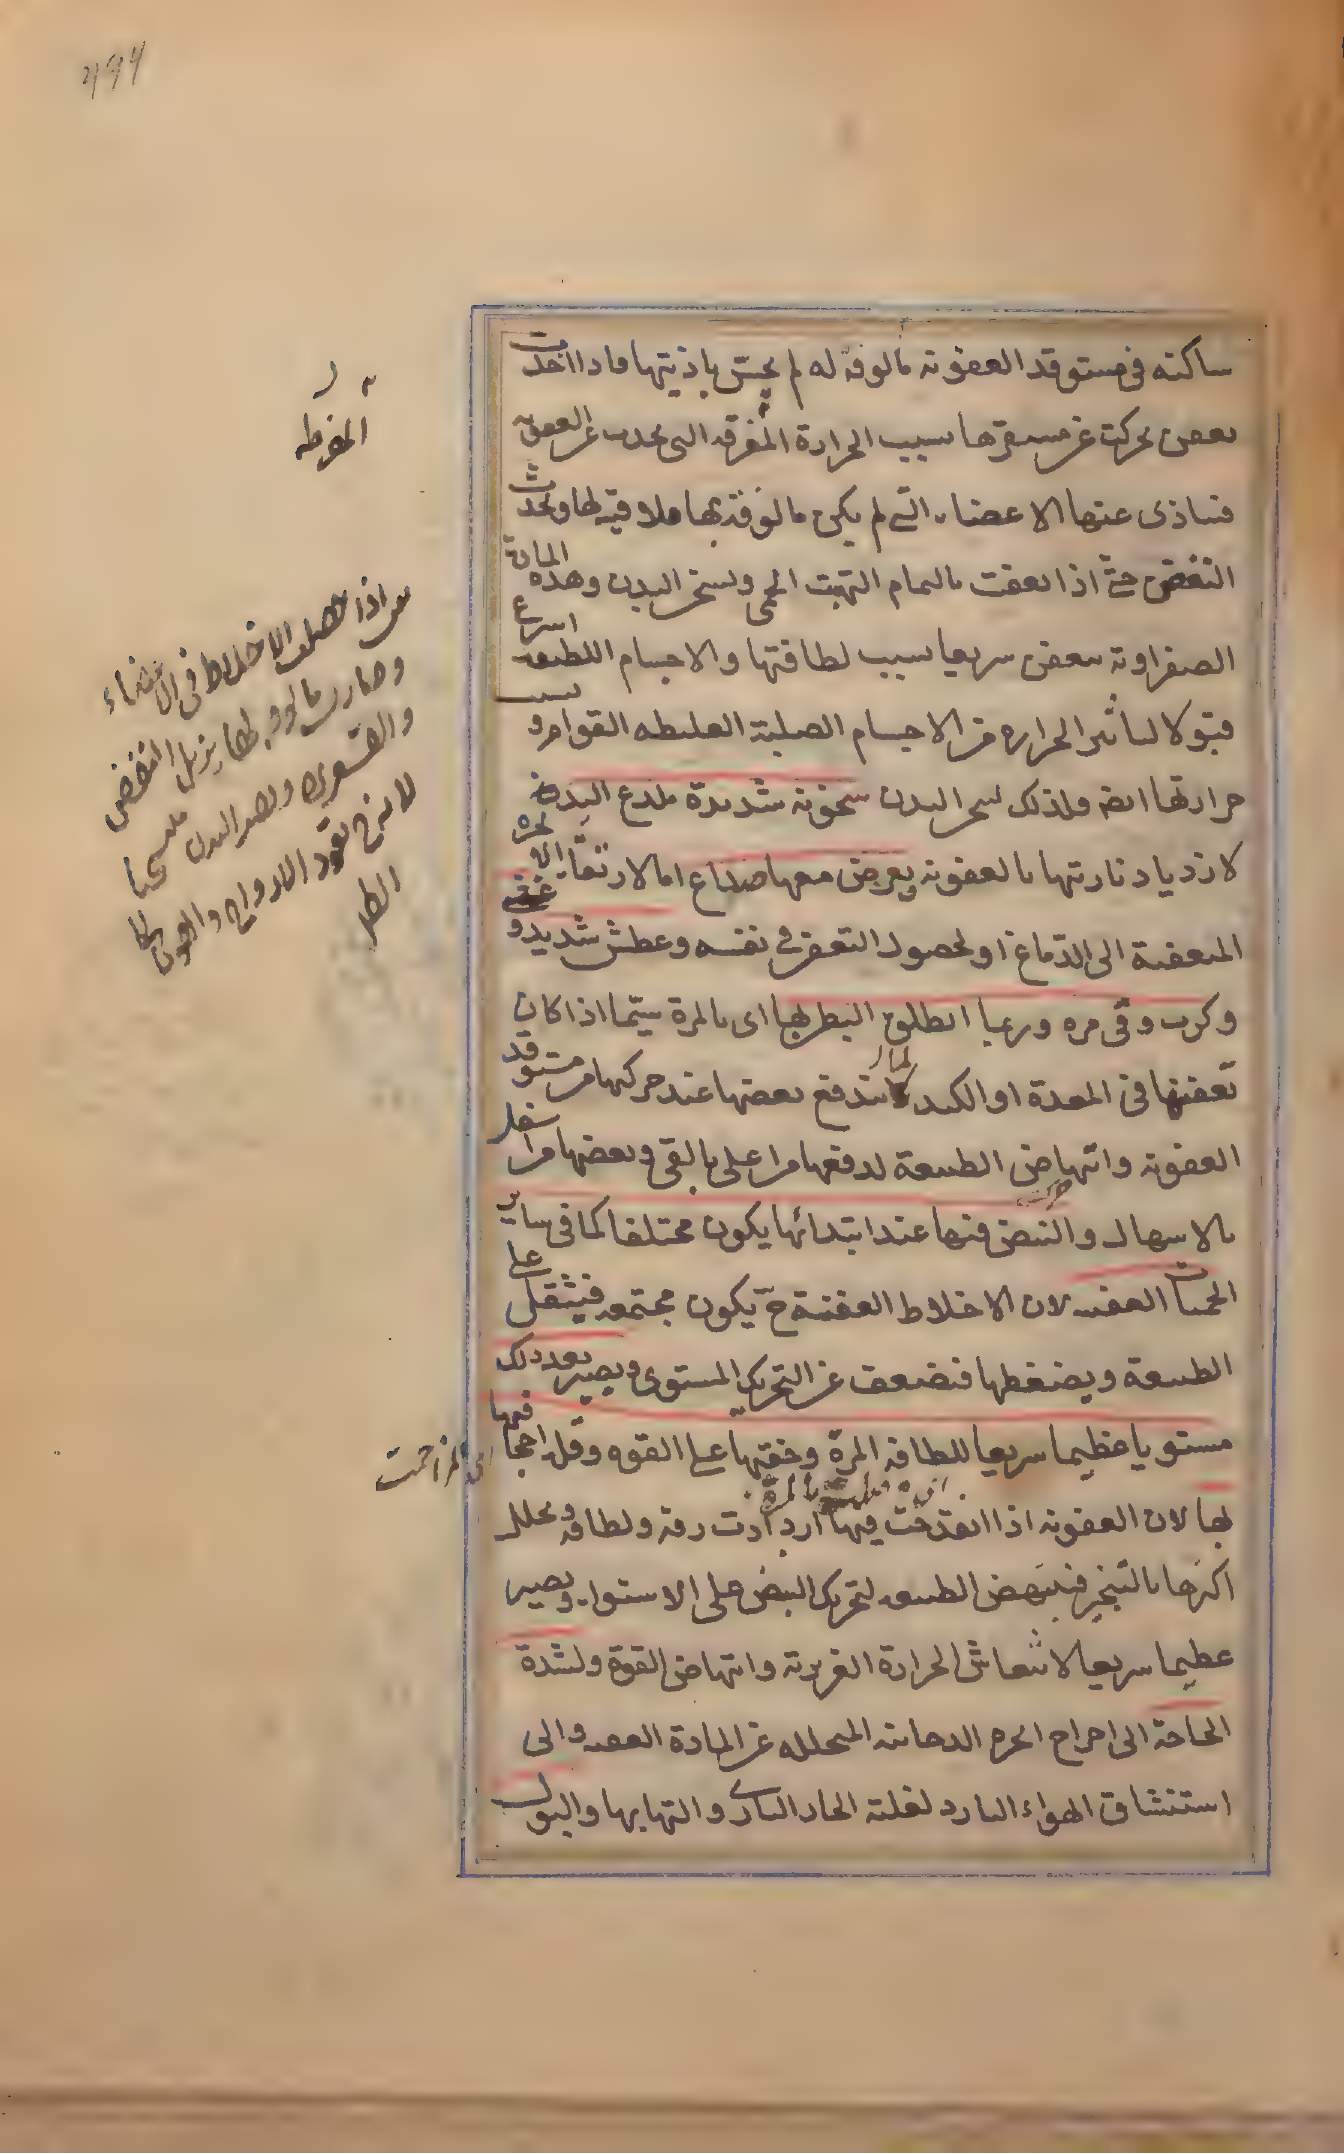 ساكنه فى مستوقد العفونه مالوفة له لم يحس باذيتها فاذا اخذت
تعفن تحركت عن مستقرها بسبب الحرارة المفرقه التى تحدث عن العفونه
فتتاذى عنها الاعضاء التى لم يكن مالوفة بها ملاقية لها وتحدث
النفض حتى اذا تعفنت بالتمام التهبت الحمى وتسخن البدن وهذه المادة
الصفراويه تتعفن سريعا بسبب لطافتها والاجسام اللطيفه اسرع
قبولا لتاثير الحراره من الاجسام الصلبة الغليظه القوام و
حرارتها ايضا ولذلك تسخن البدن سخونه شديدة تلذع البدن
لازدياد ناريتها بالعفونه ويعرض معها صداع اما لارتقاء الابخره
المتعفنة الى الدماغ او لحصول التعفن فى نفسه وعطش شديد و
وكرب وقى مره وربما انطلق البطن بها اى بالمرة سيما اذا كان
تعفنها فى المعدة او الكبد لما يندفع بعضها عند حركتها من مستوقد
العفونه وانتهاض الطبيعة لدفعها من اعلى بالقى وبعضها من اسفل
بالاسهال والنبض فيها عند ابتدائها يكون مختلفا كما فى ساير
الحميات العفنيه لان الاخلاط العفنة ح يكون مجتمعه فيثقل على
الطبيعة ويضغطها فتضعف عن التحريك المستوى ويصير بعد ذلك
مستويا عظيما سريعا للطافه المرة وخفتها على القوه وقله احجافها
بها لان العفونه اذا انقدحت فيها ازدادت رقه ولطافه وتحلل
اكثرها بالتبخير فينتهض الطبيعه لتحريك النبض على الاستواء ويصير
عظيما سريعا لانتعاش الحرارة الغريزيه وانتهاض القوة ولشدة
الحاجة الى اخراج البخره الدخانيه المتحلله عن المادة العفنه والى
استنشاق الهواء البارد لغلبة الحار النارى والتهابها والبول
المفرطه
يعنى اذا حصلت الاخلاط فى الاعضاء
وصارت مالوفه لها يزيل النفض
والقشعريره ويصير البدن متسخنا
لانه ح تعود الارواح والدم الى